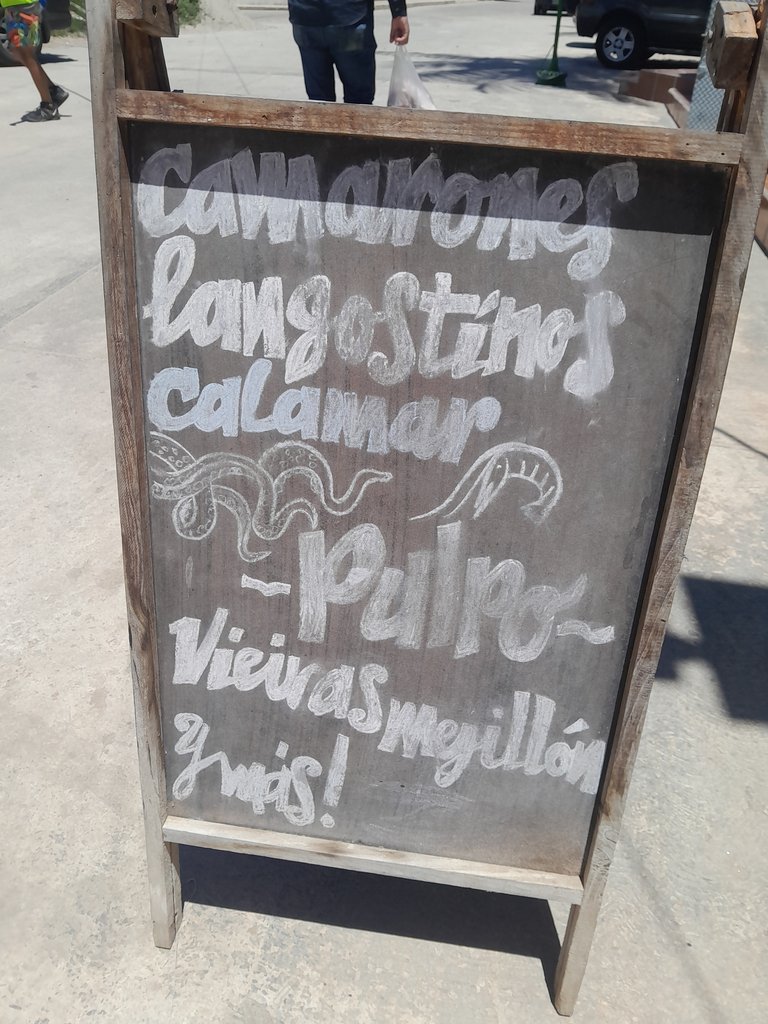 camarones
langostinos
calamar
~Pulpo~
Vieiras mejillón
y más!